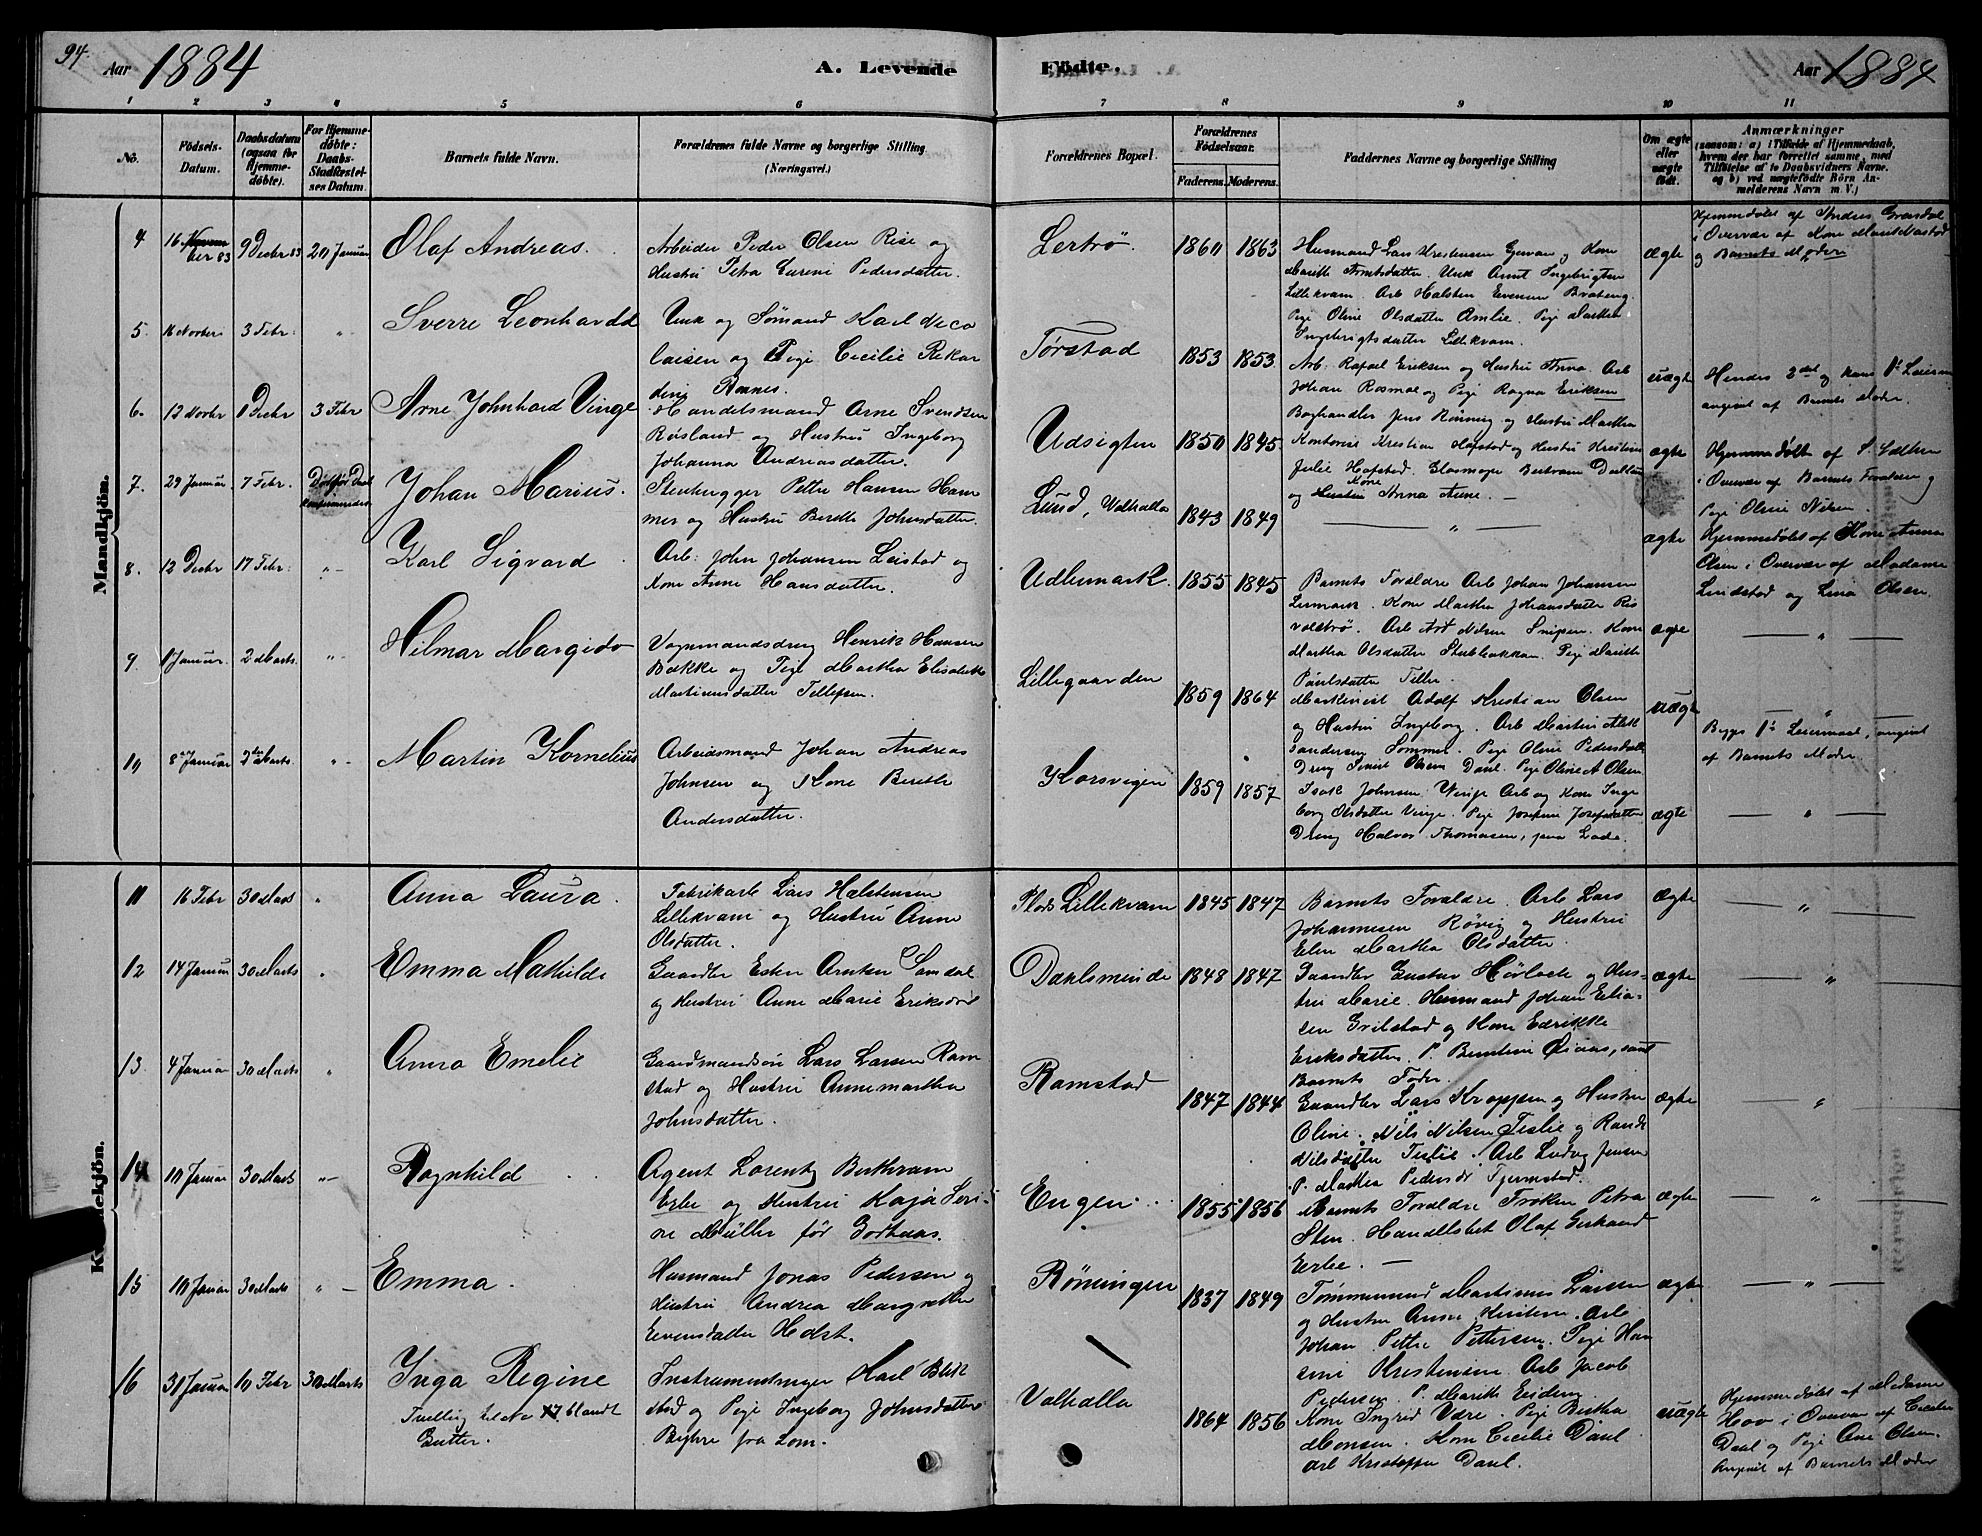 94.
Aar 1884
A. Levende Födte.
Aar 1884
1 2 3 4 5 6 7 8 9 10 11
No.
Födsels-Datum.
Daabsdatum (ogsaa for Hjemme-døbte).
For Hjemme-døbte: Daabs-Stadfæstel-ses Datum.
Barnets fulde Navn.
Forældrenes fulde Navne og borgerlige Stilling (Næringsvei.)
Forældrenes Bopæl.
Forældrenes Födselsaar.
Faderens. Moderens.
Faddernes Navne og borgerlige Stilling
Om ægte eller uægte födt.
Anmærkninger
(saasom: a) i Tilfælde af Hjemmedaab,
hvem der har forrettet samme, med
Tilföielse af to Daabsvidners Navne.
og b) ved uægtefödte Börn An-
melderens Navn m. V.)
Mandkjön.
4 16 83 9 Decbr 83 20 Januar
Olaf Andreas.
Arbeider Peder Olsen Rise og
Hustru Petra Pedersdatter.
Lertrö.
1860 1863
Husmand Lars Kristensen og Kone
Marith Arntsdatter. Unk Arnt Ingebrigtsen
Lillekvam. Arb Halsten Evensen Brateng.
Pige Oline Olsdatter Amlie. Pige Martha
Ingebrigtsdatter Lillekvam.
ægte
Hjemmedöbt af Anders
i Overvær af Kone
og Barnets Moder
5. 16 Novbr 3 Febr: "
Sverre Leonhard
Unk og Sömand Karl Nico
laisen og Pige Cecilie Rikar
dine Rannes.
Törstad
1853 1853
Arb: Rafael Eriksen og Hustru Anna Arb
Johan Rosmal og Pige Ragna Eriksen
uægte
Hendes 2det og hans 1ste Leierm
angivet af Barnets Moder.
6. 12 Novbr 1 Decbr 3 Febr
Arne Johnhard Vinge
Handelsmand Arne Svendsen
Röisland og Hustru Ingeborg
Johanna Andreasdatter.
Udsigten
1850 1845
Boghandler Jens Rönning og Hustru Martha
Kontorist Kristian Hofstad og Hustru Kristine
Julie Hofstad. Bertram
og Kone Anna Aune. —
ægte
Hjemmedöbt af
i Overvær af Barnets Forældre og
Pige Oline Nilsen.
7. 29 Januar 7 Febr.
Johan Marius.
Stenhugger Petter Hansen Ham
mer og Hustru Berith Johnsdatter.
Lund, Valhalla
1843 1849
— " —
ægte
Hjemmedöbt af Kone Anna
Olsen i Overvær af Madame
Lundstad og Lina Olsen.
8. 12 Decbr 17 Febr: "
Karl Sigvard
Arb: John Johansen Leistad og
Kone Anne Hansdatter.
Udlumark.
1855 1845
Barnets Forældre Arb Johan Johansen
Lermark. Kone Martha Johansdatter Ris
volströ. Arb Nilsen Kone
Martha Olsdatter Pige Marith
Paulsdatter Tiller.
ægte
— " —
9. 1 Januar. 2 Marts. "
Hilmar Margido
Vognmandsdreng Henrik Hansen
Bakke og Pige Martha Elisabeth
Martinusdatter Tellefsen.
Lillegaarden
1859 1864
Maskinist Adolf Kristian Olsen
og Hustru Ingeborg. Arb Martin Alek
sandersen Sommer. Pige Oline Pedersdatt
Dreng Olsen Daul. Pige Oline A Olsen
uægte
— " —
Begges 1ste Leiermaal, angivet
af Barnets Moder.
10 8 Januar 2den Marts. "
Martin Kornelius
Arbeidsmand Johan Andreas
Johnsen og Kone Berith
Andersdatter.
Korsvigen
1859 1857
Isak Johnsen Vinge Arb og Kone Inge
borg Olsdatter Vinge. Pige Josefine Josefsdatter
Dreng Halvor Thomasen, paa Lade.
ægte
— " —
Kvindekjön.
11 16 Febr 30 Marts "
Anna Laura.
Fabrikarb Lars Halstensen
Lillekvam og Hustru Anne
Olsdatter.
Plads Lillekvam
1845 1847
Barnets Forældre. Arb Lars
Johannesen Rövig og Hustru
Elen Martha Olsdatter.
ægte
— " —
12 14 Januar 30 Marts "
Emma Mathilde
Gaardbr Arntsen
og Hustru Anne Marie Eriksdtr
Dahlsminde
1848 1847
Gaardbr Gustav Hörloch og Hus-
tru Marie. Husmand Johan Elia-
sen Grilstad og Kone Edrikke
Eriksdatter. P. Bentine samt
Barnets Fader.
ægte
— " —
13. 4 Januar 30 Marts "
Anna Emelie
Gaardmandssön Lars Larsen Ram
stad og Hustru Annemartha
Johnsdatter.
Ramstad
1847 1844
Gaardbr Lars Kroppen og Hustru
Oline. Nils Nilsen Teslie og Randi
Nilsdatter Teslie. Arb Ludvig Jensen
P. Martha Pedersdr Fjermstad.
ægte
— " —
14 10 Januar 30 Marts "
Ragnhild
Agent Lorentz Berthram
Erbe og Hustru Kaja Seri-
ne Müller før Godtaas.
Engen.
1855 1856
Barnets Forældre Fröken Petra
Sten. Handelsbet Olaf Gerhard
Erbe. —
ægte
— " —
15 10 Januar 30 Marts "
Emma.
Husmand Jonas Pedersen og
Hustru Andrea Margrethe
Evensdatter Holst.
Rönningen
1837 1849
Tömmermand Martinus Larsen
og Hustru Anne Kirstine. Arb
Johan Petter Pettersen. Pige Han
sine Kristensen Arb Jacob
Pedersen. P. Marith Eiding.
ægte
— " —
16 31 Januar 10 Febr 30 Marts
Inga Regine
Tvilling til No 17 blandt
Gutter.
Instrumentmager Karl Blik
stad og Pige Ingeborg Johnsdatter
fra Lom.
Valhalla
1864 1856
Kone Ingrid Være. Pige Bertha
Monsen. Kone Cecilie Daul
Arb Kristoffer Daul.
uægte
Hjemmedöbt af Madame
Hov i Overvær af Cecilie
Daul og Pige Ane Olsen.
Angivet af Barnets Moder